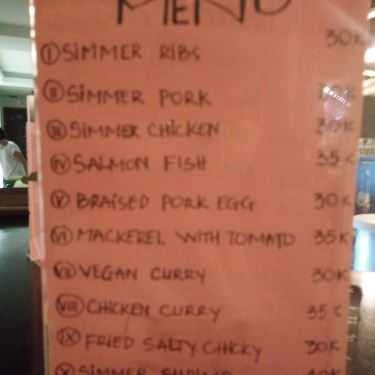 MENU
I SIMMER RIBS 30K
II SIMMER PORK
III SIMMER CHICKEN 30K
IV SALMON FISH 35K
V BRAISED PORK EGG 30K
VI MACKEREL WITH TOMATO 35K
VII VEGAN CURRY 30K
VIII CHICKEN CURRY 35K
IX FRIED SALTY CHICKY 30K
X SIMMER SHRIMP 30K